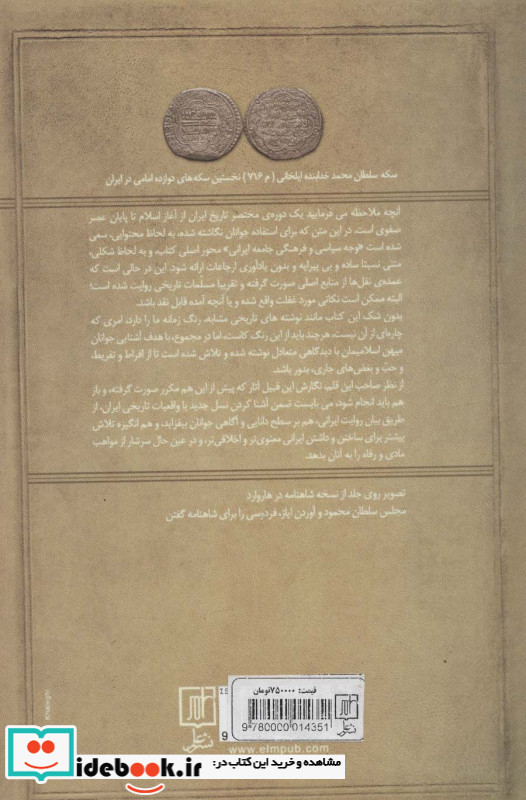 سکه سلطان محمد خدابنده ایلخانی ( م ۷۱۶) نخستین سکه‌های دوازده امامی در ایران
آنچه ملاحظه می فرمایید یک دوره‌ی مختصر تاریخ ایران از آغاز اسلام تا پایان عصر
صفوی است. در این متن که برای استفاده جوانان نگاشته شده، به لحاظ محتوایی، سعی
شده است «وجه سیاسی و فرهنگی جامعه ایرانی» محور اصلی کتاب، و به لحاظ شکلی،
متنی نسبتا ساده و بی پیرایه و بدون یادآوری ارجاعات ارائه شود. این در حالی است که
عمده‌ی نقل‌ها از منابع اصلی صورت گرفته و تقریبا مسلّمات تاریخی روایت شده است؛
البته ممکن است نکاتی مورد غفلت واقع شده و یا آنچه آمده قابل نقد باشد.
بدون شک این کتاب مانند نوشته های تاریخی مشابه، رنگ زمانه ما را دارد، امری که
چاره‌ای از آن نیست، هرچند باید از این رنگ کاست، اما در مجموع، با هدف آشنایی جوانان
میهن اسلامیمان با دیدگاهی متعادل نوشته شده و تلاش شده است تا از افراط و تفریط،
و حبّ و بغض‌های جاری، بدور باشد.
از نظر صاحب این قلم، نگارش این قبیل آثار که پیش از این هم مکرر صورت گرفته، و باز
هم باید انجام شود، می بایست ضمن آشنا کردن نسل جدید با واقعیات تاریخی ایران، از
طریق بیان روایت ایرانی، هم بر سطح دانایی و آگاهی جوانان بیفزاید، و هم انگیزه تلاش
بیشتر برای ساختن و داشتن ایرانی معنوی‌تر و اخلاقی‌تر، و در عین حال سرشار از مواهب
مادی و رفاه را به آنان بدهد.
تصویر روی جلد از نسخه شاهنامه در هاروارد
مجلس سلطان محمود و آوردن ایاز، فردوسی را برای شاهنامه گفتن
قیمت: ۷۵۰۰۰۰تومان
9 780000 014351
نشر علم
www.elmpub.com
مشاهده و خرید این کتاب در:
idebook.ir